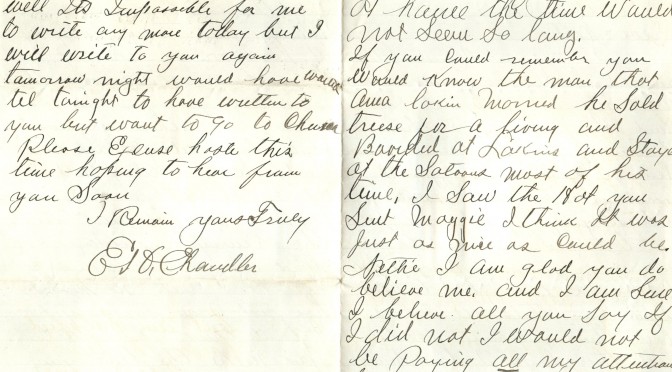 well Its Impossible for me
to write any more today but I
will write to you again
tomorrow night would have waited
til tonight to have written to
you but want to go to Church
Please Excuse haste this
time hoping to hear from
you Soon
I Remain yours Truly
Chandler
the time would
not seem so long.
If you could remember you
would know the man that
Anna Lakin Married he Sold
trees for a living and
Boarded at Lakins and Stays
at the Saloons most of his
time, I Saw the Hat you
Sent Maggie I think It was
Just as nice as could be.
Nettie I am glad you do
believe me. and I am Sure
I believe all you Say If
I did not I would not
be Paying all my attention